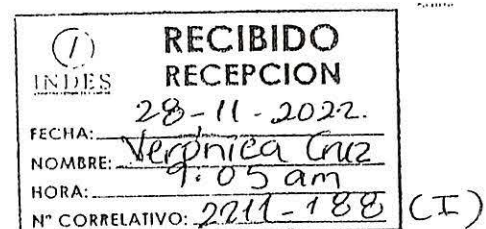 RECIBIDO
INDES RECEPCION
FECHA: 28-11-2022.
NOMBRE: Verónica Cruz
HORA: 9:05 am
N° CORRELATIVO: 2211-188 (I)